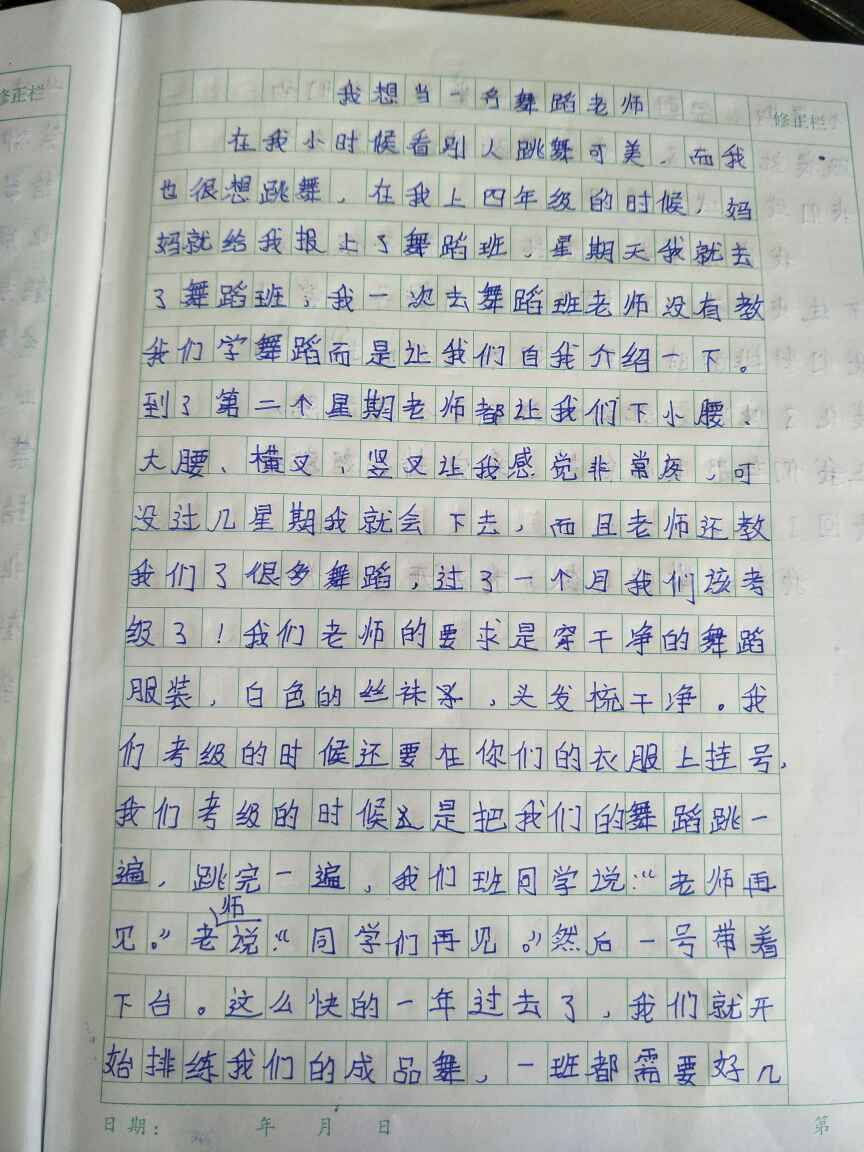 我想当一名舞蹈老师
修正栏
修正栏
在我小时候看别人跳舞可美,而我
也很想跳舞,在我上四年级的时候,妈
妈就给我报上了舞蹈班,星期天我就去
了舞蹈班,我一次去舞蹈班老师没有教
我们学舞蹈而是让我们自我介绍一下。
到了第二个星期老师都让我们下小腰、
大腰、横叉、竖叉让我感觉非常疼,可
没过几星期我就会下去,而且老师还教
我们了很多舞蹈,过了一个月我们该考
级了!我们老师的要求是穿干净的舞蹈
服装,白色的丝袜子,头发梳干净。我
们考级的时候还要在你们的衣服上挂号,
我们考级的时候是把我们的舞蹈跳一
遍,跳完一遍,我们班同学说:“老师再
见。”老师说:“同学们再见。”然后一号带着
下台。这么快的一年过去了,我们就开
始排练我们的成品舞,一班都需要好几
日期: 年 月 日
第